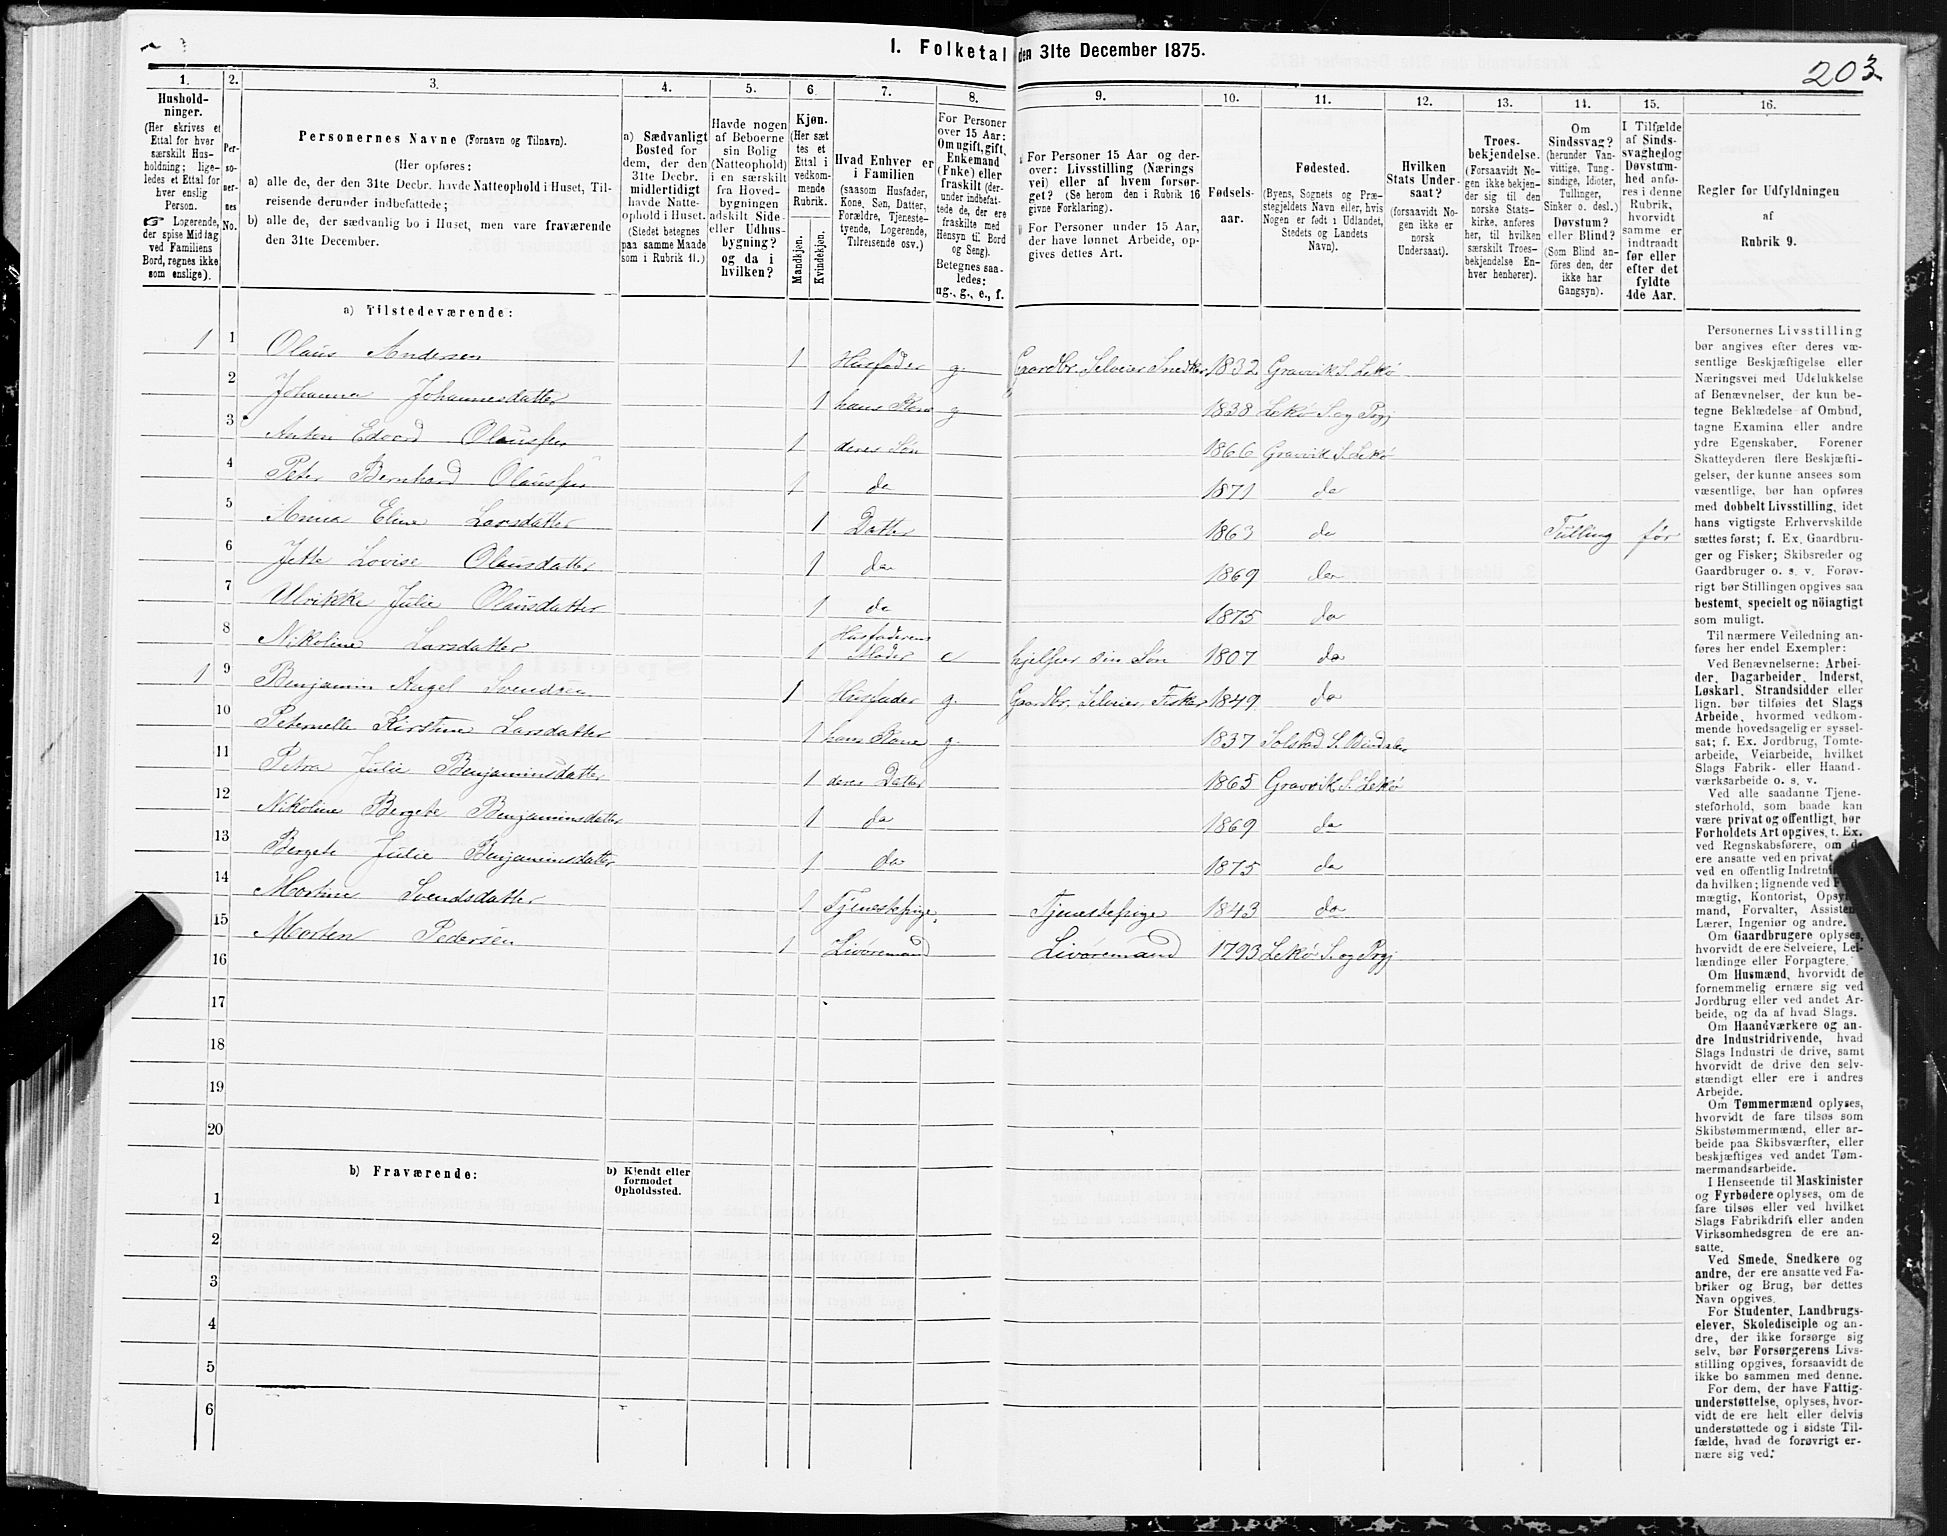 I. Folketal den 31te December 1875.
203
1. 2. 3. 4. 5. 6. 7. 8. 9. 10. 11. 12. 13. 14. 15. 16.
Hushold-
ninger.
(Her skrives et
Ettal for hver
særskilt Hus-
holdning; lige-
ledes et Ettal for
hver enslig
Person.
☞ Logerende,
der spise Middag
ved Familiens
Bord, regnes ikke
som enslige).
Per-
so-
ner-
nes
No.
Personernes Navne (Fornavn og Tilnavn).
(Her opføres:
a) alle de, der den 31te Decbr. havde Natteophold i Huset, Til-
reisende derunder indbefattede;
b) alle de, der sædvanlig bo i Huset, men vare fraværende
den 31te December.
a) Sædvanligt
Bosted for
dem, der den
31te Decbr.
midlertidigt
havde Natte-
ophold i Huset.
(Stedet betegnes
paa samme Maade
som i Rubrik 11.)
Havde nogen
af Beboerne
sin Bolig
(Natteophold)
i en særskilt
fra Hoved-
bygningen
adskilt Side-
eller Udhus-
bygning?
og da i
hvilken?
Kjøn.
(Her sæt-
tes et
Ettal i
vedkom-
mende
Rubrik.
Mandkjøn.
Kvindekjøn.
Hvad Enhver er
i Familien
(saasom Husfader,
Kone, Søn, Datter,
Forældre, Tjeneste-
tyende, Logerende,
Tilreisende osv.)
For Personer
over 15 Aar:
Om ugift, gift,
Enkemand
(Enke) eller
fraskilt (der-
under indbefat-
tede de, der ere
fraskilte med
Hensyn til Bord
og Seng).
Betegnes saa-
ledes:
ug., g., e., f.
For Personer 15 Aar og der-
over: Livsstilling (Nærings
vei) eller af hvem forsør-
get? (Se herom den i Rubrik 16
givne Forklaring).
For Personer under 15 Aar,
der have lønnet Arbeide, op-
gives dettes Art.
Fødsels-
aar.
Fødested.
(Byens, Sognets og Præ-
stegjeldets Navn eller, hvis
Nogen er født i Udlandet,
Stedets og Landets
Navn).
Hvilken
Stats Under-
saat?
(forsaavidt No-
gen ikke er
norsk
Undersaat).
Troes-
bekjendelse.
(Forsaavidt No-
gen ikke bekjen-
der sig til den
norske Stats-
kirke, anføres
her, til hvilken
særskilt Troes-
bekjendelse En-
hver henhører).
Om
Sindssvag?
(herunder Van-
vittige, Tung-
sindige, Idioter,
Tullinger,
Sinker o. desl.)
Døvstum?
eller Blind?
(Som Blind an-
føres den, der
ikke har
Gangsyn).
I Tilfælde
af Sinds-
svaghed og
Døvstum-
hed anfø-
res i denne
Rubrik,
hvorvidt
samme er
indtraadt
før eller
efter det
fyldte
4de Aar.
Regler for Udfyldningen
af
Rubrik 9.
a) Tilstedeværende:
1 1 Olaus Andersen 1 Husfader g. Gaardbr. Selveier Snedker 1832 Gravvik S. Lekø
2 Johanna Johannesdatter 1 hans Kone g 1838 Lekø S. og Prgj
3 Anton Edvard Olaussen 1 deres Søn 1866 Gravvik S. Lekø
4 Peter Bernhard Olaussen 1 do 1871 do
5 Anna Eline Larsdatter 1 Datter 1863 do Tulling før
6 Jette Lovise Olausdatter 1 do 1869 do
7 Ulrikke Julie Olausdatter 1 do 1875 do
8 Nikoline Larsdatter 1 Husfaderens Moder e hjelper sin Søn 1807 do
1 9 Benjamin Angel Svendsen 1 Husfader g. Gaardbr. Selveier, Fisker 1849 do
10 Peternelle Kirstine Larsdatter 1 hans Kone g. 1837 Solstad S. Bindalen
11 Petra Julie Benjaminsdatter 1 deres Datter 1865 Gravvik S. Lekø
12 Nikoline Bergete Benjaminsdatter 1 do 1869 do
13 Bergete Julie Benjaminsdatter 1 do 1875 do
14 Martine Svendsdatter 1 Tjenestepige Tjenestepige 1843 do
15 Morten Pedersen 1 Livøremand Livøremand 1793 Lekø S. og Prgj
16
17
18
19
20
b) Fraværende:
b) Kjendt eller
formodet
Opholdssted.
1
2
3
4
5
6
Personernes Livsstilling
bør angives efter deres væ-
sentlige Beskjæftigelse eller
Næringsvei med Udelukkelse
af Benævnelser, der kun be-
tegne Beklædelse af Ombud,
tagne Examina eller andre
ydre Egenskaber. Forener
Skatteyderen flere Beskjæfti-
gelser, der kunne ansees som
væsentlige, bør han opføres
med dobbelt Livsstilling, idet
hans vigtigste Erhvervskilde
sættes først; f. Ex. Gaardbru-
ger og Fisker; Skibsreder og
Gaardbruger o. s. v. Forøv-
rigt bør Stillingen opgives saa
bestemt, specielt og nöiagtigt
som muligt.
Til nærmere Veiledning an-
føres her endel Exempler:
Ved Benævnelserne: Arbei-
der, Dagarbeider, Inderst,
Løskarl, Strandsidder eller
lign. bør tilføies det Slags
Arbeide, hvormed vedkom-
mende hovedsagelig er syssel-
sat; f. Ex. Jordbrug, Tomte-
arbeide, Veiarbeide, hvilket
Slags Fabrik- eller Haand-
værksarbeide o. s. v.
Ved alle saadanne Tjene-
steforhold, som baade kan
være privat og offentligt, bør
Forholdets Art opgives, t. Ex.
ved Regnskabsførere, om de
ere ansatte ved en privat
ved en offentlig Indretning
da hvilken; lignende ved
mægtig, Kontorist, Opsyns-
mand, Forvalter, Assistent,
Lærer, Ingeniør og andre.
Om Gaardbrugere oplyses,
hvorvidt de ere Selveiere, Lei-
lændinge eller Forpagtere.
Om Husmænd, hvorvidt de
fornemmelig ernære sig ved
Jordbrug eller ved andet Ar-
beide, og da af hvad Slags.
Om Haandværkere og an-
dre Industridrivende, hvad
Slags Industri de drive, samt
hvorvidt de drive den selv-
stændigt eller ere i andres
Arbeide.
Om Tømmermænd oplyses,
hvorvidt de fare tilsøs som
Skibstømmermænd, eller ar-
beide paa Skibsværfter, eller
beskjæftiges ved andet Tøm-
mermandsarbeide.
I Henseende til Maskinister
og Fyrbødere oplyses, om de
fare tilsøs eller ved hvilket
Slags Fabrikdrift eller anden
Virksomhedsgren de ere an-
satte.
Ved Smede, Snedkere og
andre, der ere ansatte ved Fa-
briker og Brug, bør dettes
Navn opgives.
For Studenter, Landbrugs-
elever, Skoledisciple og an-
dre, der ikke forsørge sig
selv, bør Forsørgerens Livs-
stilling opgives, forsaavidt de
ikke bo sammen med denne.
For dem, der have Fattig-
understøttelse, oplyses, hvor-
vidt de ere helt eller delvis
understøttede og i sidste Til-
fælde, hvad de forøvrigt er-
nære sig ved.